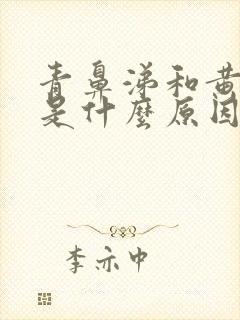 青鼻涕和黄
是什麼原因
李亦中